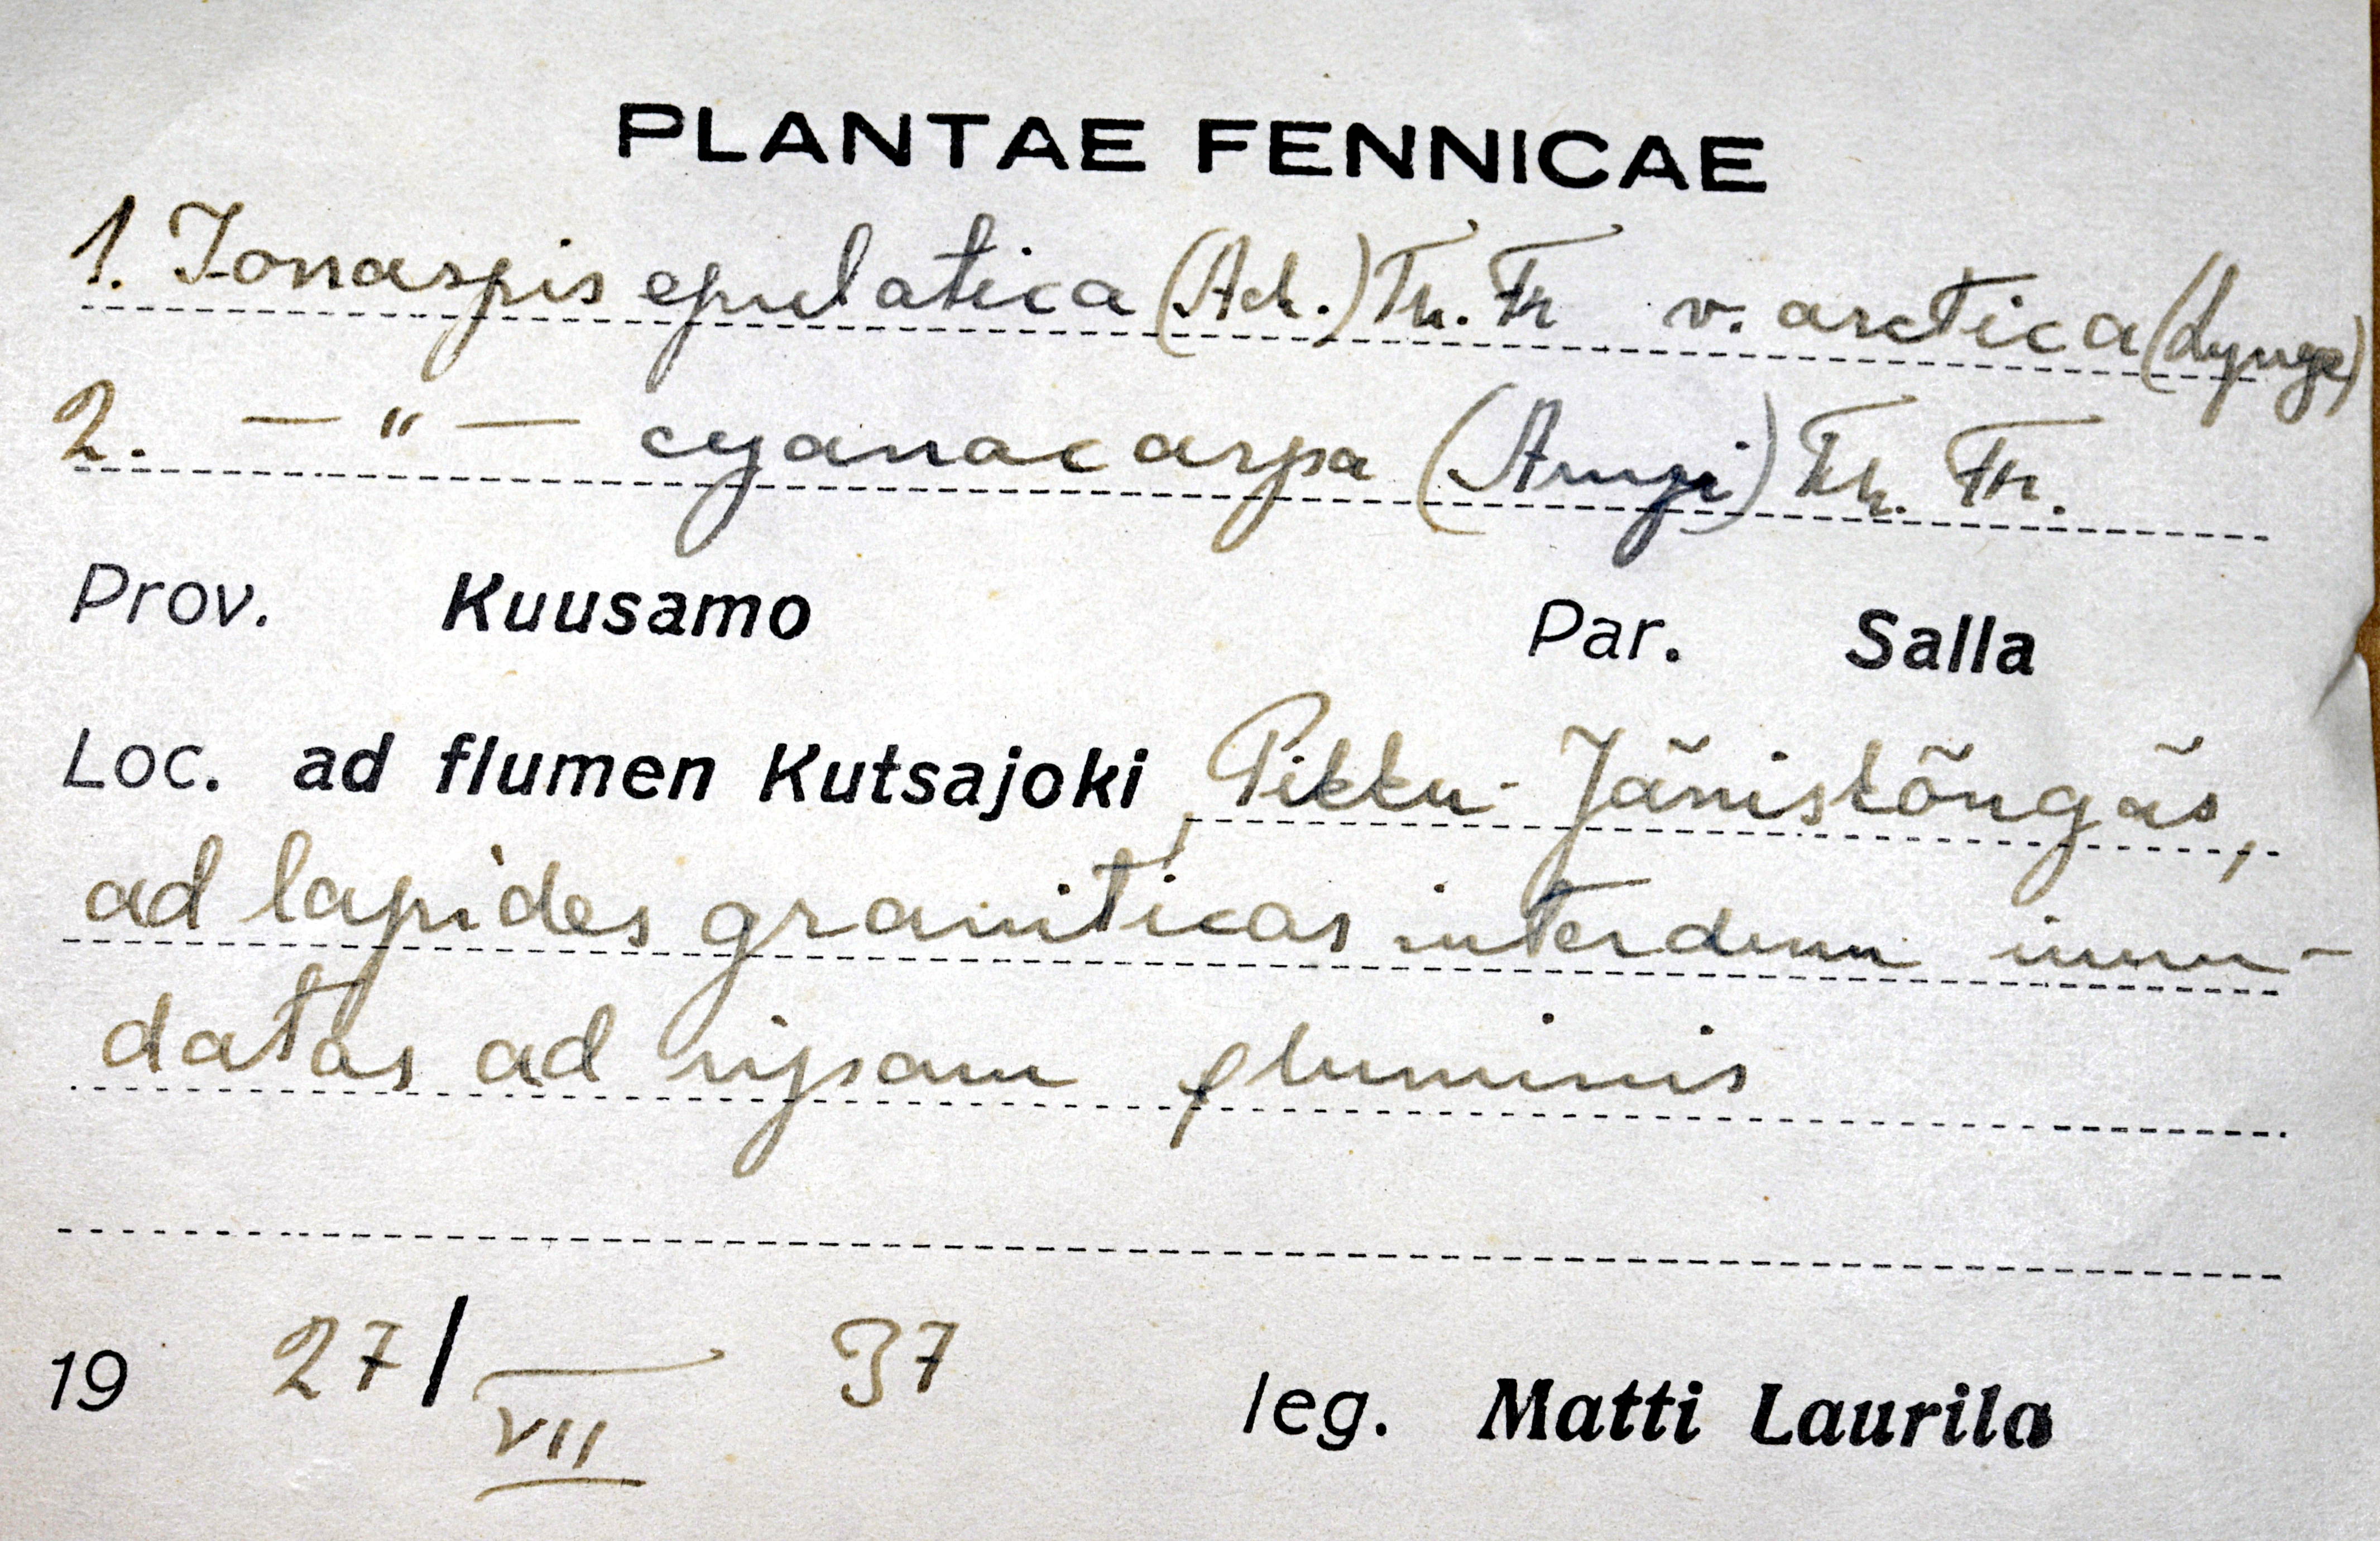 PLANTAE FENNICAE
1. Ionaspis epulatica (Ach.) Th. Fr v. arctica (Lynge)
2. — " — cyanocarpa (Anzi) Th. Fr.
Prov. Kuusamo Par. Salla
Loc. ad flumen Kutsajoki, Pikku-Jäniskõngäs,
ad lapides graniticas interdum inun-
datas ad ripam fluminis
19 27/VII 37 leg. Matti Laurila